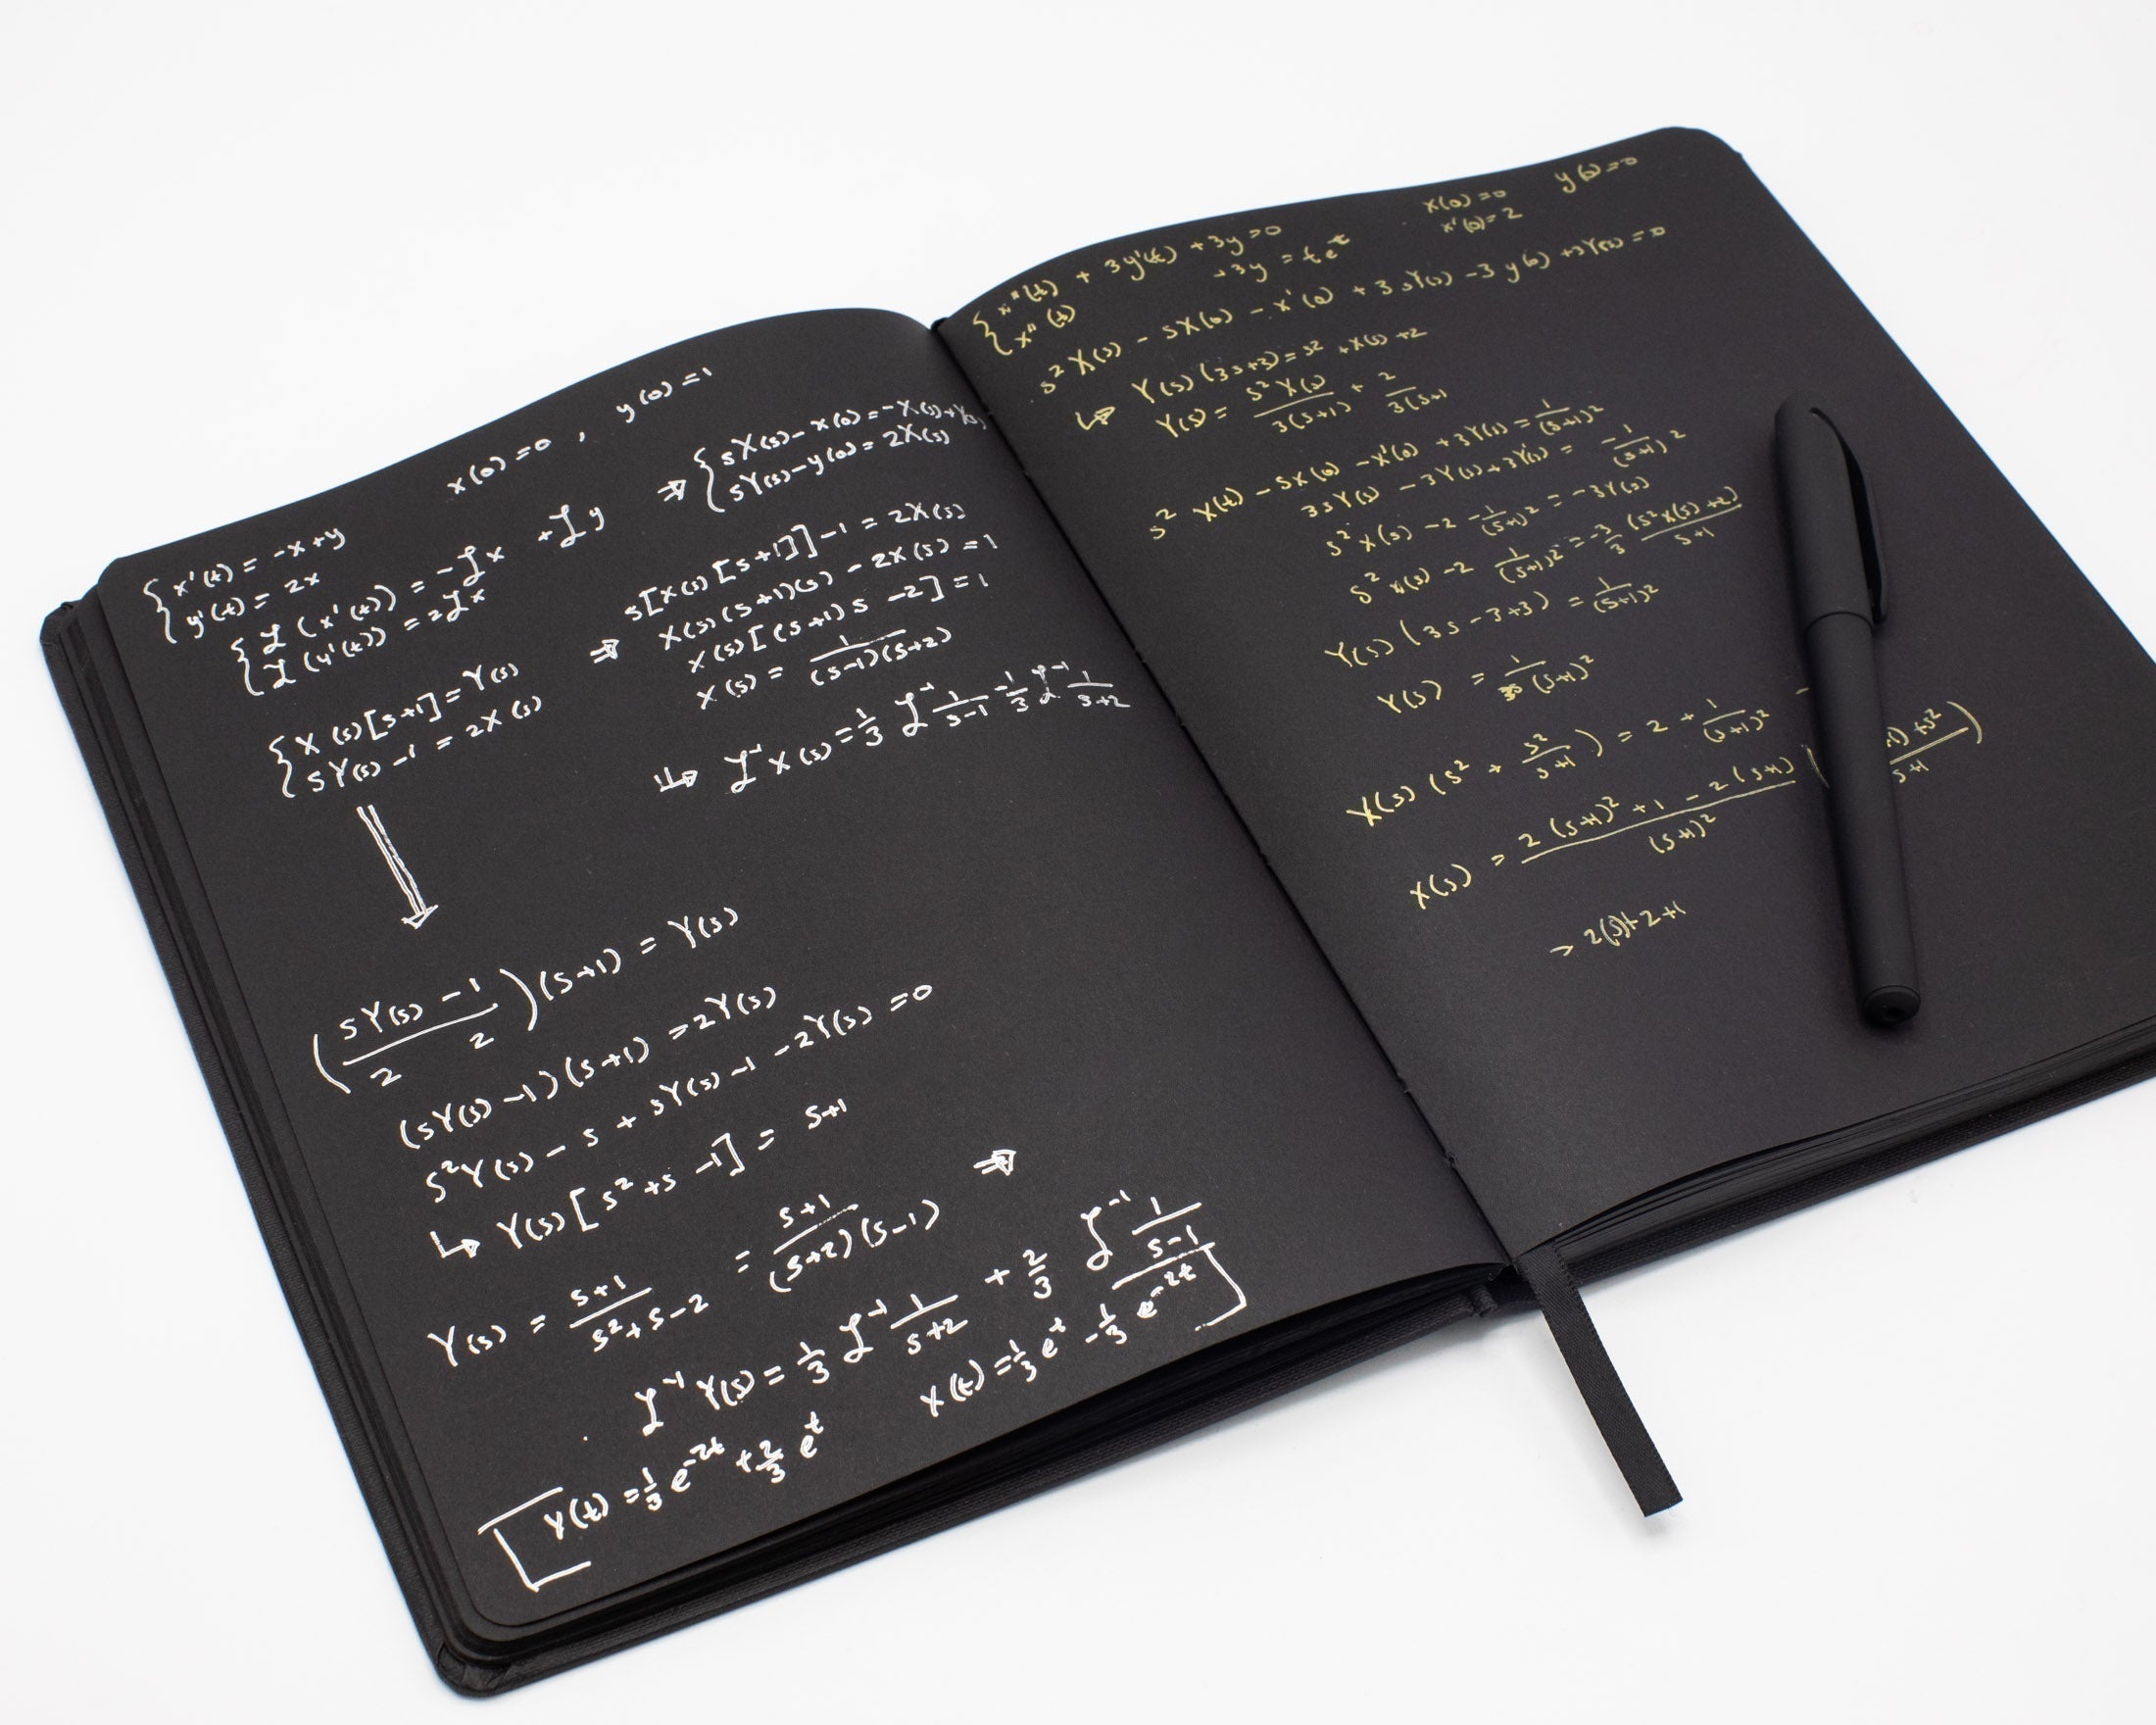 x(0)=0 , y(0)=1
{x'(t) = -x+y
y'(t) = 2x
{ℒ(x'(t)) = -ℒx +ℒy
ℒ(y'(t)) = 2ℒx
⇒ {sX(s)-x(0)=-X(s)+Y(s)
sY(s)-y(0)=2X(s)
{X(s)[s+1]=Y(s)
sY(s)-1=2X(s)
⇒ s[X(s)[s+1]]-1=2X(s)
X(s)(s+1)(s)-2X(s)=1
X(s)[(s+1)s-2]=1
X(s)=1/(s-1)(s+2)
↳ ℒ⁻¹X(s)=1/3 ℒ⁻¹ 1/s-1 -1/3 ℒ⁻¹ 1/s+2
(sY(s)-1 / 2 2)(s+1)=Y(s)
(sY(s)-1)(s+1)=2Y(s)
s²Y(s)-s+sY(s)-1-2Y(s)=0
↳ Y(s)[s²+s-1]=s+1
Y(s)=s+1/s²+s-2 = s+1/(s+2)(s-1) ⇒
ℒ⁻¹Y(s)=1/3 ℒ⁻¹ 1/s+2 + 2/3 ℒ⁻¹ 1/s-1
y(t)=1/3 e^-2t +2/3 e^t
x(t)=1/3 e^t -1/3 e^-2t
{x''(t) + 3y'(t) +3y=0
x''(t) +3y=te^t
x(0)=0
x'(0)=2
y(0)=0
s²X(s)-sX(0)-x'(0)+3sY(s)-3y(0)+3Y(s)=0
↳ Y(s)(3s+3)=s²+X(s)+2
Y(s)=s²X(s)/3(s+1) + 2/3(s+1
s²X(t)-sX(0)-x'(0)+3Y(s)=1/(s+1)²
3sY(s)-3Y(s)+3Y(s)= -1/(s+1)²
s²X(s)-2-1/(s+1)²=-3Y(s)
s²X(s)-2 1/(s+1)²=-3/3 (s²X(s)+2)/s+1
Y(s)(3s-3+3)=1/(s+1)²
Y(s)=1/3s(s+1)²
X(s)(s²+s²/s+1)=2+1/(s+1)² -
X(s)=2(s+1)²+1-2(s+1)/(s+1)² ( +s²/s+1)
→ 2(s)+2+1